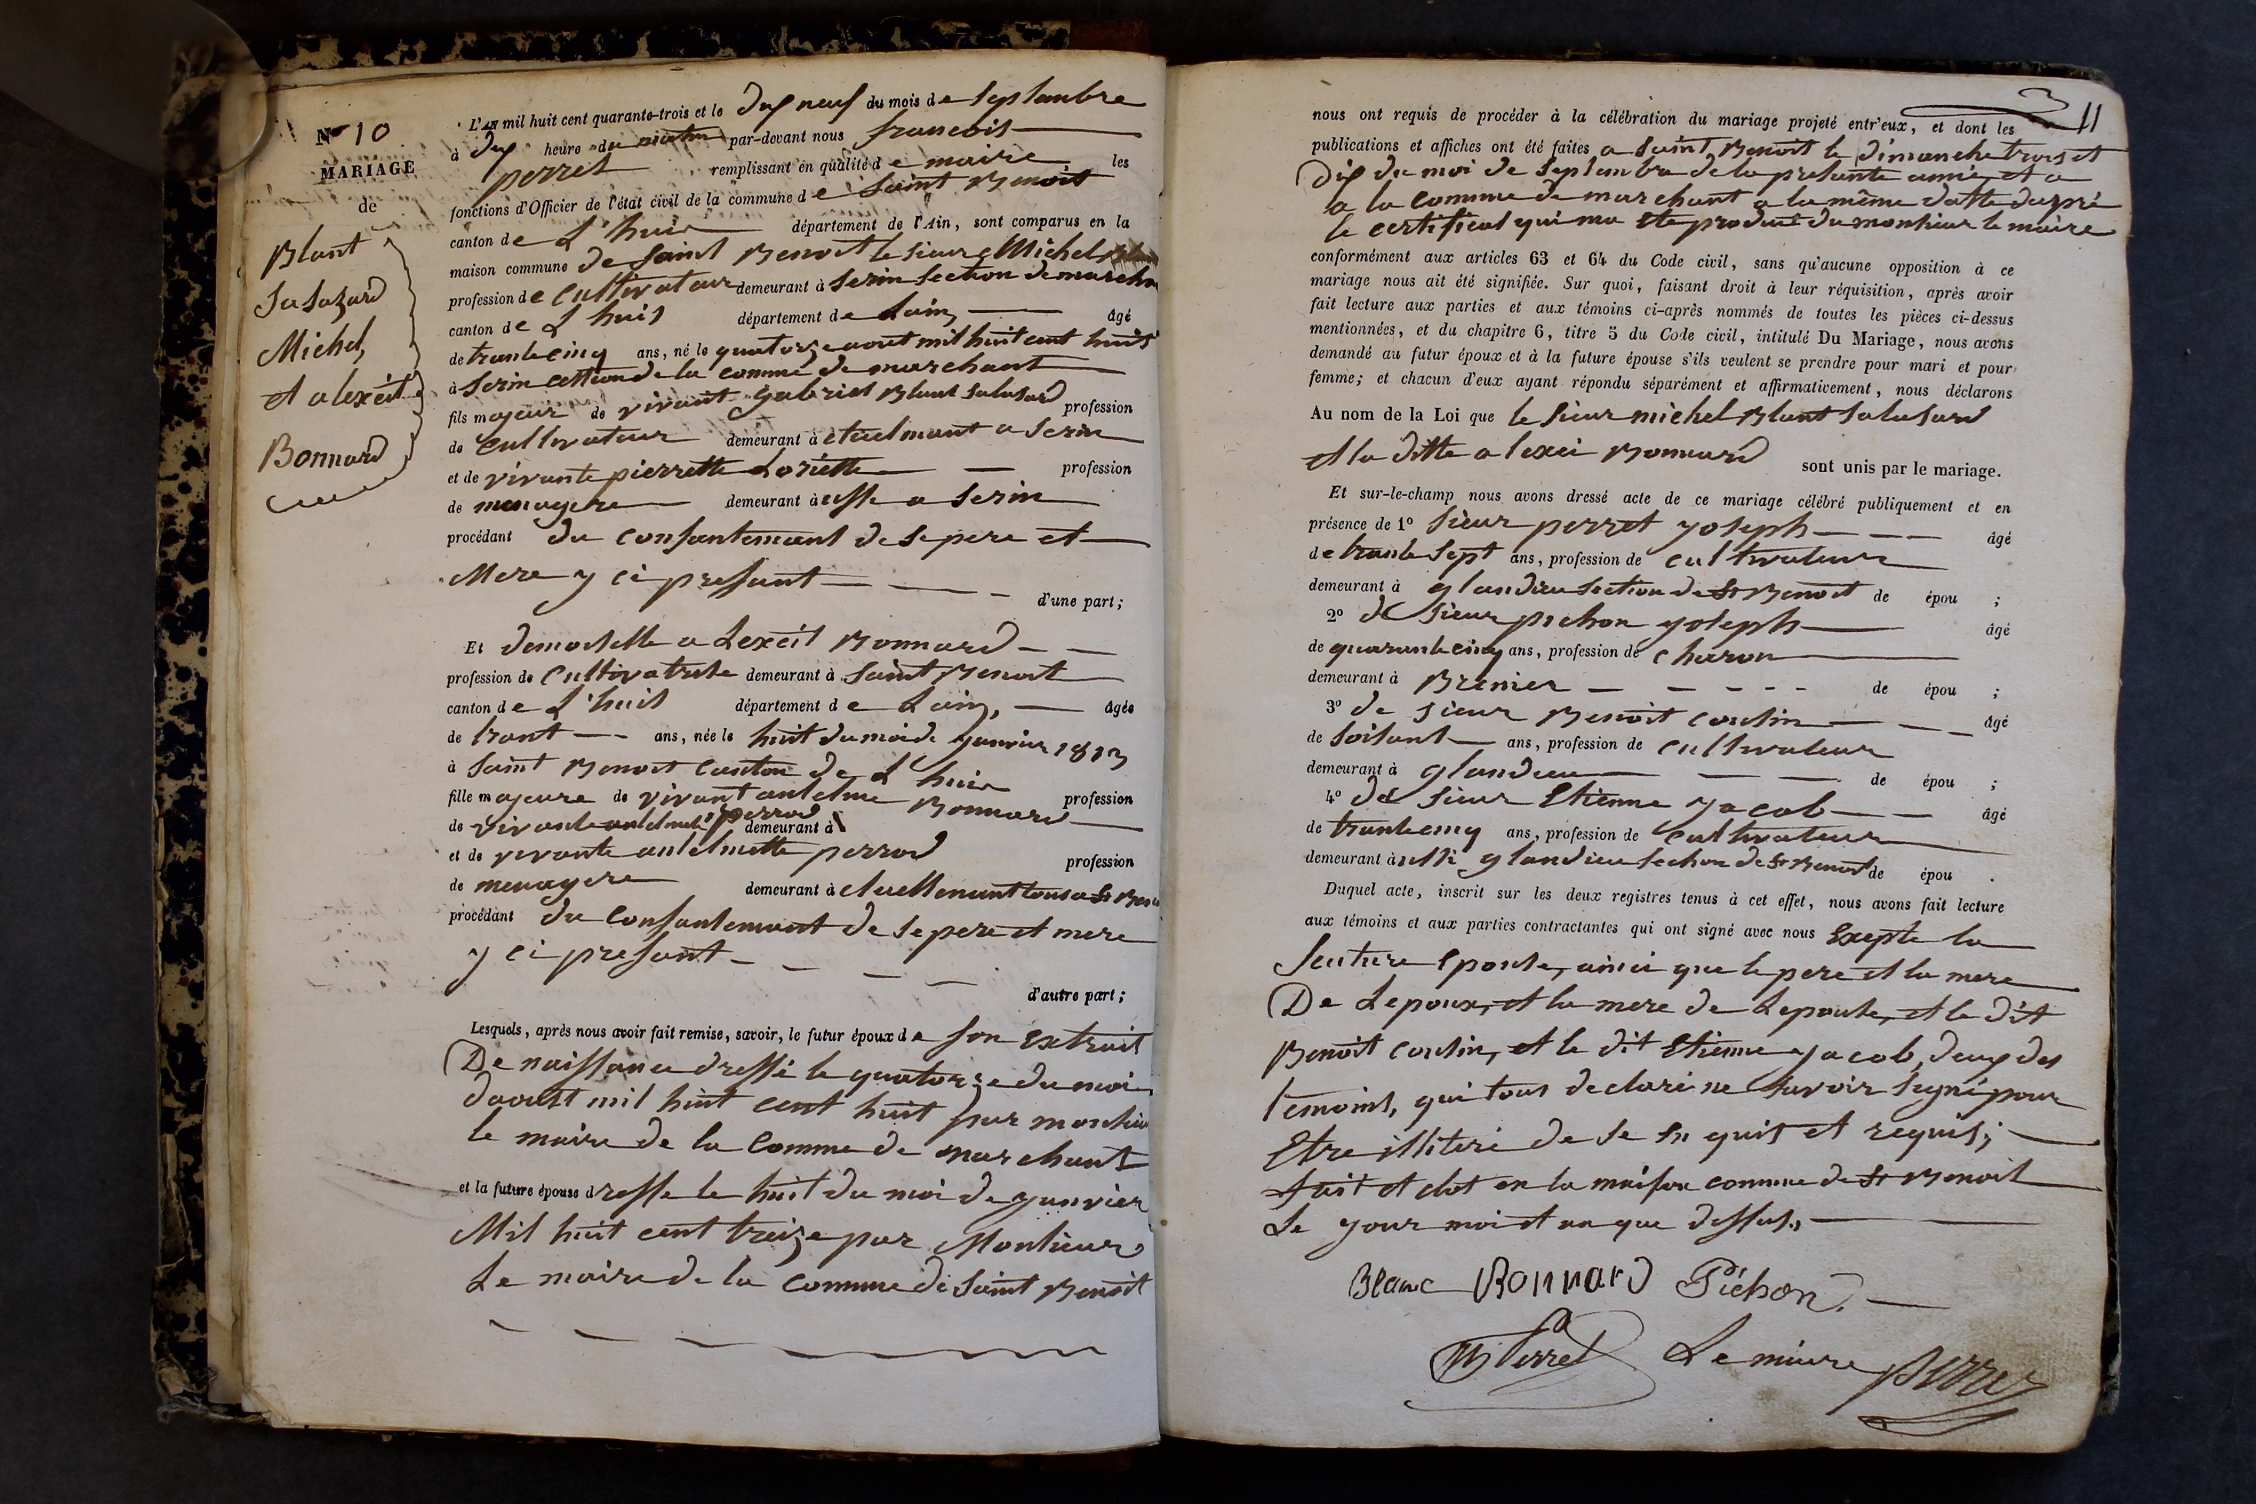 N° 10
MARIAGE
de
Blant
Sasazard
Michel,
et alexeit
Bonnard
L'AN mil huit cent quarante-trois et le dix neuf du mois de septambre
à dix heure du matin par-devant nous francois
perret remplissant en qualité de maire les
fonctions d'Officier de l'état civil de la commune de Saint Benoit
canton de L'huis département de l'Ain, sont comparus en la
maison commune de Saint Benoit le sieur Michel
profession de cultivateur demeurant à Serin section de marcha
canton de Lhuis département de Lain, âgé
de trante cinq ans, né le quatorze aout mil huit cent huit
à Serin cettion de la comme de marchant
fils majeur de vivant gabriel Blant Salasard profession
de cultivateur demeurant à etuelmant a Serin
et de vivante pierrette Loriette profession
de menagere demeurant à ausse a Serin
procédant du consantemant de se pere et
Mere y ci presant
d'une part;
Et demoiselle a Lexeit Bonnard
profession de Cultivatrise demeurant à Saint Benoit
canton de L'huis département de Lain, âgée
de trant ans, née le huit du moi de janvier 1813
à Saint Benoit canton de L'huis
fille majeure de vivant antelme Bonnard profession
de vivante antelmete perrod demeurant à
et de vivante antelmette perrod profession
de menagere demeurant à etuellemant tous a St Beno
procédant du consantemant de se pere et mere
y ci presant
d'autre part;
Lesquels, après nous avoir fait remise, savoir, le futur époux de son extrait
De naissance dressé le quatorze du moi
daoust mil huit cent huit par monsieu
le maire de la comme de marchant
et la future épouse dresse le huit du moi de janvier
Mil huit cent treize par Monsieur
Le maire de la commune de Saint Benoit
11
nous ont requis de procéder à la célébration du mariage projeté entr'eux, et dont les
publications et affiches ont été faites a Saint Benoit le dimanche trois et
Dix du moi de septambre de la presante année et a
a la comme de marchant a la même datte daprè
le certificat qui ma ete produit du monsieur le maire
conformément aux articles 63 et 64 du Code civil, sans qu'aucune opposition à ce
mariage nous ait été signifiée. Sur quoi, faisant droit à leur réquisition, après avoir
fait lecture aux parties et aux témoins ci-après nommés de toutes les pièces ci-dessus
mentionnées, et du chapitre 6, titre 5 du Code civil, intitulé Du Mariage, nous avons
demandé au futur époux et à la future épouse s'ils veulent se prendre pour mari et pour
femme; et chacun d'eux ayant répondu séparément et affirmativement, nous déclarons
Au nom de la Loi que le sieur michel Blant Salasard
et la ditte a lexei Bonnard sont unis par le mariage.
Et sur-le-champ nous avons dressé acte de ce mariage célébré publiquement et en
présence de 1° Sieur perret joseph âgé
de trante sept ans, profession de cultivateur
demeurant à glandieu section de St Benoit de épou ;
2° de sieur pichon joseph âgé
de quarante cinq ans, profession de charon
demeurant à Brenier de épou ;
3° de sieur Benoit cousin âgé
de soisant ans, profession de cultivateur
demeurant à glandieu de épou ;
4° de sieur Etienne jacob âgé
de trante cinq ans, profession de cultivateur
demeurant à glandieu section de St Benoit de épou .
Duquel acte, inscrit sur les deux registres tenus à cet effet, nous avons fait lecture
aux témoins et aux parties contractantes qui ont signé avec nous Exepte la
feuture epouse, ainci que le pere et la mere
De Lepoux, et la mere de Lepouse, et le dit
Benoit cousin, et le dit Etienne jacob, deux des
temoins, qui tous declaré ne savoir signé pour
Etre illiteré de se en quis et requis;
fait et clot en la maison comme de St Benoit
Le jour moi et an que dessus,
Blanc Bonnard Pichon
Perret Le maire Perret